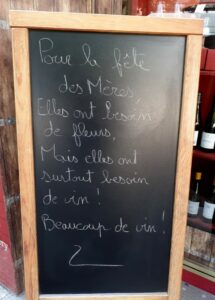 Pour la fête
des Mères,
Elles ont besoin
de fleurs,
Mais elles ont
surtout besoin
de vin !
Beaucoup de vin !